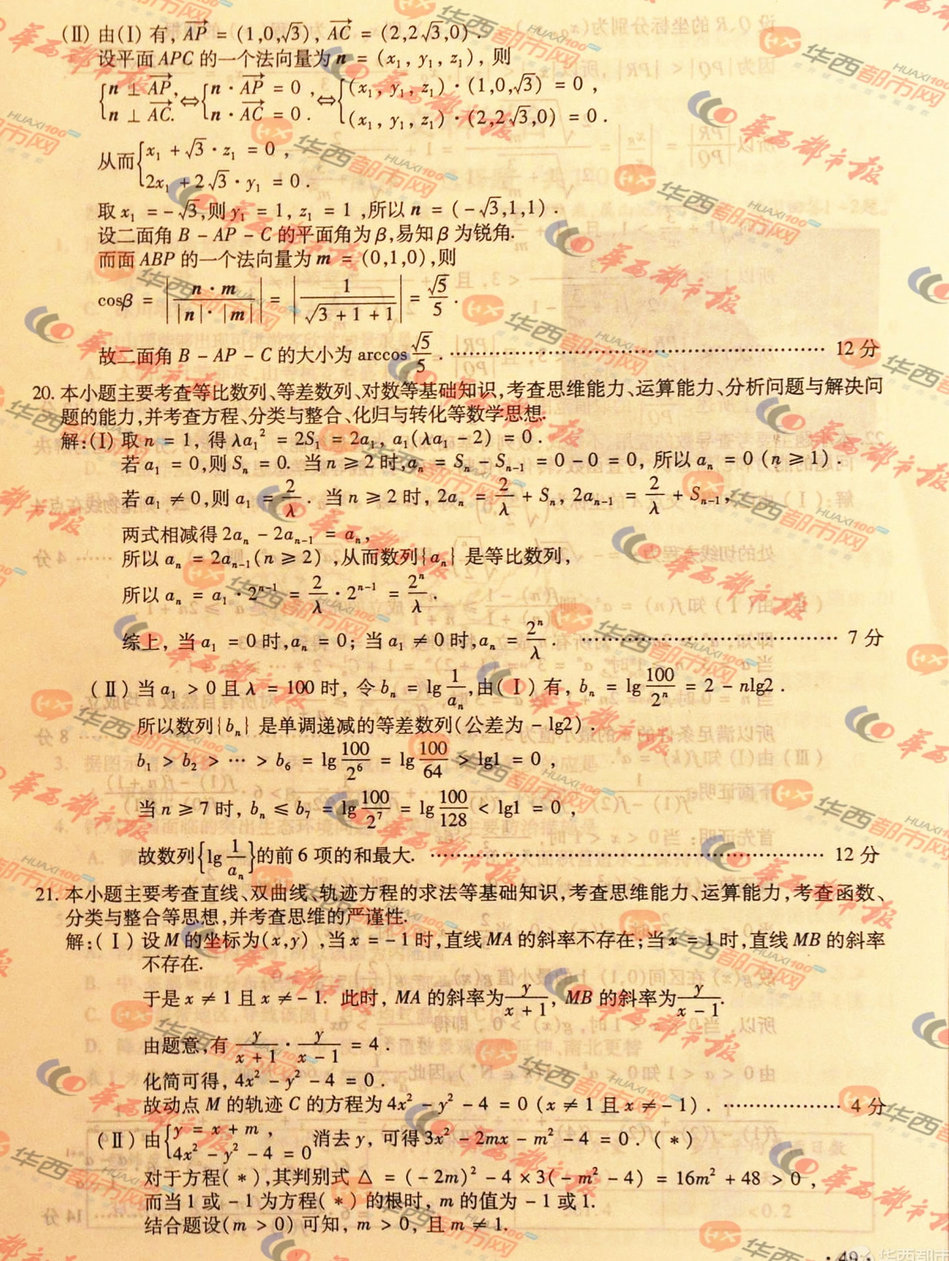 (Ⅱ) 由(Ⅰ) 有, AP = (1,0,√3), AC = (2,2√3,0).
设平面 APC 的一个法向量为 n = (x₁, y₁, z₁), 则
{n ⊥ AP, n ⊥ AC. ⇔ {n · AP = 0, n · AC = 0. ⇔ {(x₁, y₁, z₁) · (1,0,√3) = 0, (x₁, y₁, z₁) · (2,2√3,0) = 0.
从而{x₁ + √3 · z₁ = 0, 2x₁ + 2√3 · y₁ = 0.
取 x₁ = -√3,则 y₁ = 1, z₁ = 1,所以 n = (-√3,1,1).
设二面角 B - AP - C 的平面角为 β,易知 β 为锐角.
而面 ABP 的一个法向量为 m = (0,1,0),则
cosβ = |n · m / |n| · |m|| = |1/√(3 + 1 + 1)| = √5/5.
故二面角 B - AP - C 的大小为 arccos √5/5. …… 12 分
20. 本小题主要考查等比数列、等差数列、对数等基础知识,考查思维能力、运算能力、分析问题与解决问
题的能力,并考查方程、分类与整合、化归与转化等数学思想.
解:(Ⅰ) 取 n = 1, 得 λa₁² = 2S₁ = 2a₁, a₁(λa₁ - 2) = 0.
若 a₁ = 0,则 Sₙ = 0. 当 n ≥ 2 时,aₙ = Sₙ - Sₙ₋₁ = 0 - 0 = 0, 所以 aₙ = 0 (n ≥ 1).
若 a₁ ≠ 0,则 a₁ = 2/λ. 当 n ≥ 2 时, 2aₙ = 2/λ + Sₙ, 2aₙ₋₁ = 2/λ + Sₙ₋₁,
两式相减得 2aₙ - 2aₙ₋₁ = aₙ,
所以 aₙ = 2aₙ₋₁(n ≥ 2),从而数列{aₙ} 是等比数列,
所以 aₙ = a₁ · 2ⁿ⁻¹ = 2/λ · 2ⁿ⁻¹ = 2ⁿ/λ.
综上, 当 a₁ = 0 时,aₙ = 0; 当 a₁ ≠ 0 时,aₙ = 2ⁿ/λ. …… 7 分
(Ⅱ) 当 a₁ > 0 且 λ = 100 时, 令 bₙ = lg 1/aₙ,由(Ⅰ) 有, bₙ = lg 100/2ⁿ = 2 - nlg2.
所以数列{bₙ} 是单调递减的等差数列(公差为 - lg2).
b₁ > b₂ > … > b₆ = lg 100/2⁶ = lg 100/64 > lg1 = 0,
当 n ≥ 7 时, bₙ ≤ b₇ = lg 100/2⁷ = lg 100/128 < lg1 = 0,
故数列{lg 1/aₙ}的前 6 项的和最大. …… 12 分
21. 本小题主要考查直线、双曲线、轨迹方程的求法等基础知识,考查思维能力、运算能力,考查函数、
分类与整合等思想,并考查思维的严谨性.
解:(Ⅰ) 设 M 的坐标为(x,y),当 x = -1 时,直线 MA 的斜率不存在;当 x = 1 时,直线 MB 的斜率
不存在.
于是 x ≠ 1 且 x ≠ -1. 此时, MA 的斜率为 y/(x + 1), MB 的斜率为 y/(x - 1).
由题意,有 y/(x + 1) · y/(x - 1) = 4.
化简可得, 4x² - y² - 4 = 0.
故动点 M 的轨迹 C 的方程为 4x² - y² - 4 = 0 (x ≠ 1 且 x ≠ -1). …… 4 分
(Ⅱ) 由{y = x + m, 4x² - y² - 4 = 0 消去 y, 可得 3x² - 2mx - m² - 4 = 0. (*)
对于方程(*),其判别式 △ = (-2m)² - 4 × 3(-m² - 4) = 16m² + 48 > 0,
而当 1 或 -1 为方程(*) 的根时, m 的值为 -1 或 1.
结合题设(m > 0) 可知, m > 0, 且 m ≠ 1.
· 49 ·
华西都市报
华西都市网
HUAXI100.com